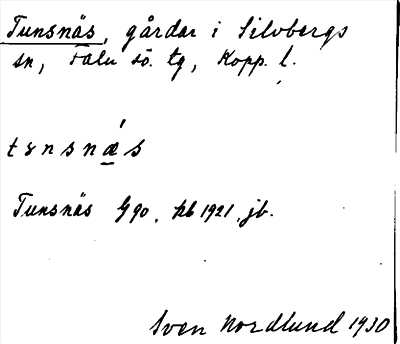 Tunsnäs, gårdar i Silvbergs
sn, Falu sö. tg, Kopp. l.
tɞnsnǽs
Tunsnäs G 90, hb 1921, jb.
Sven Nordlund 1930